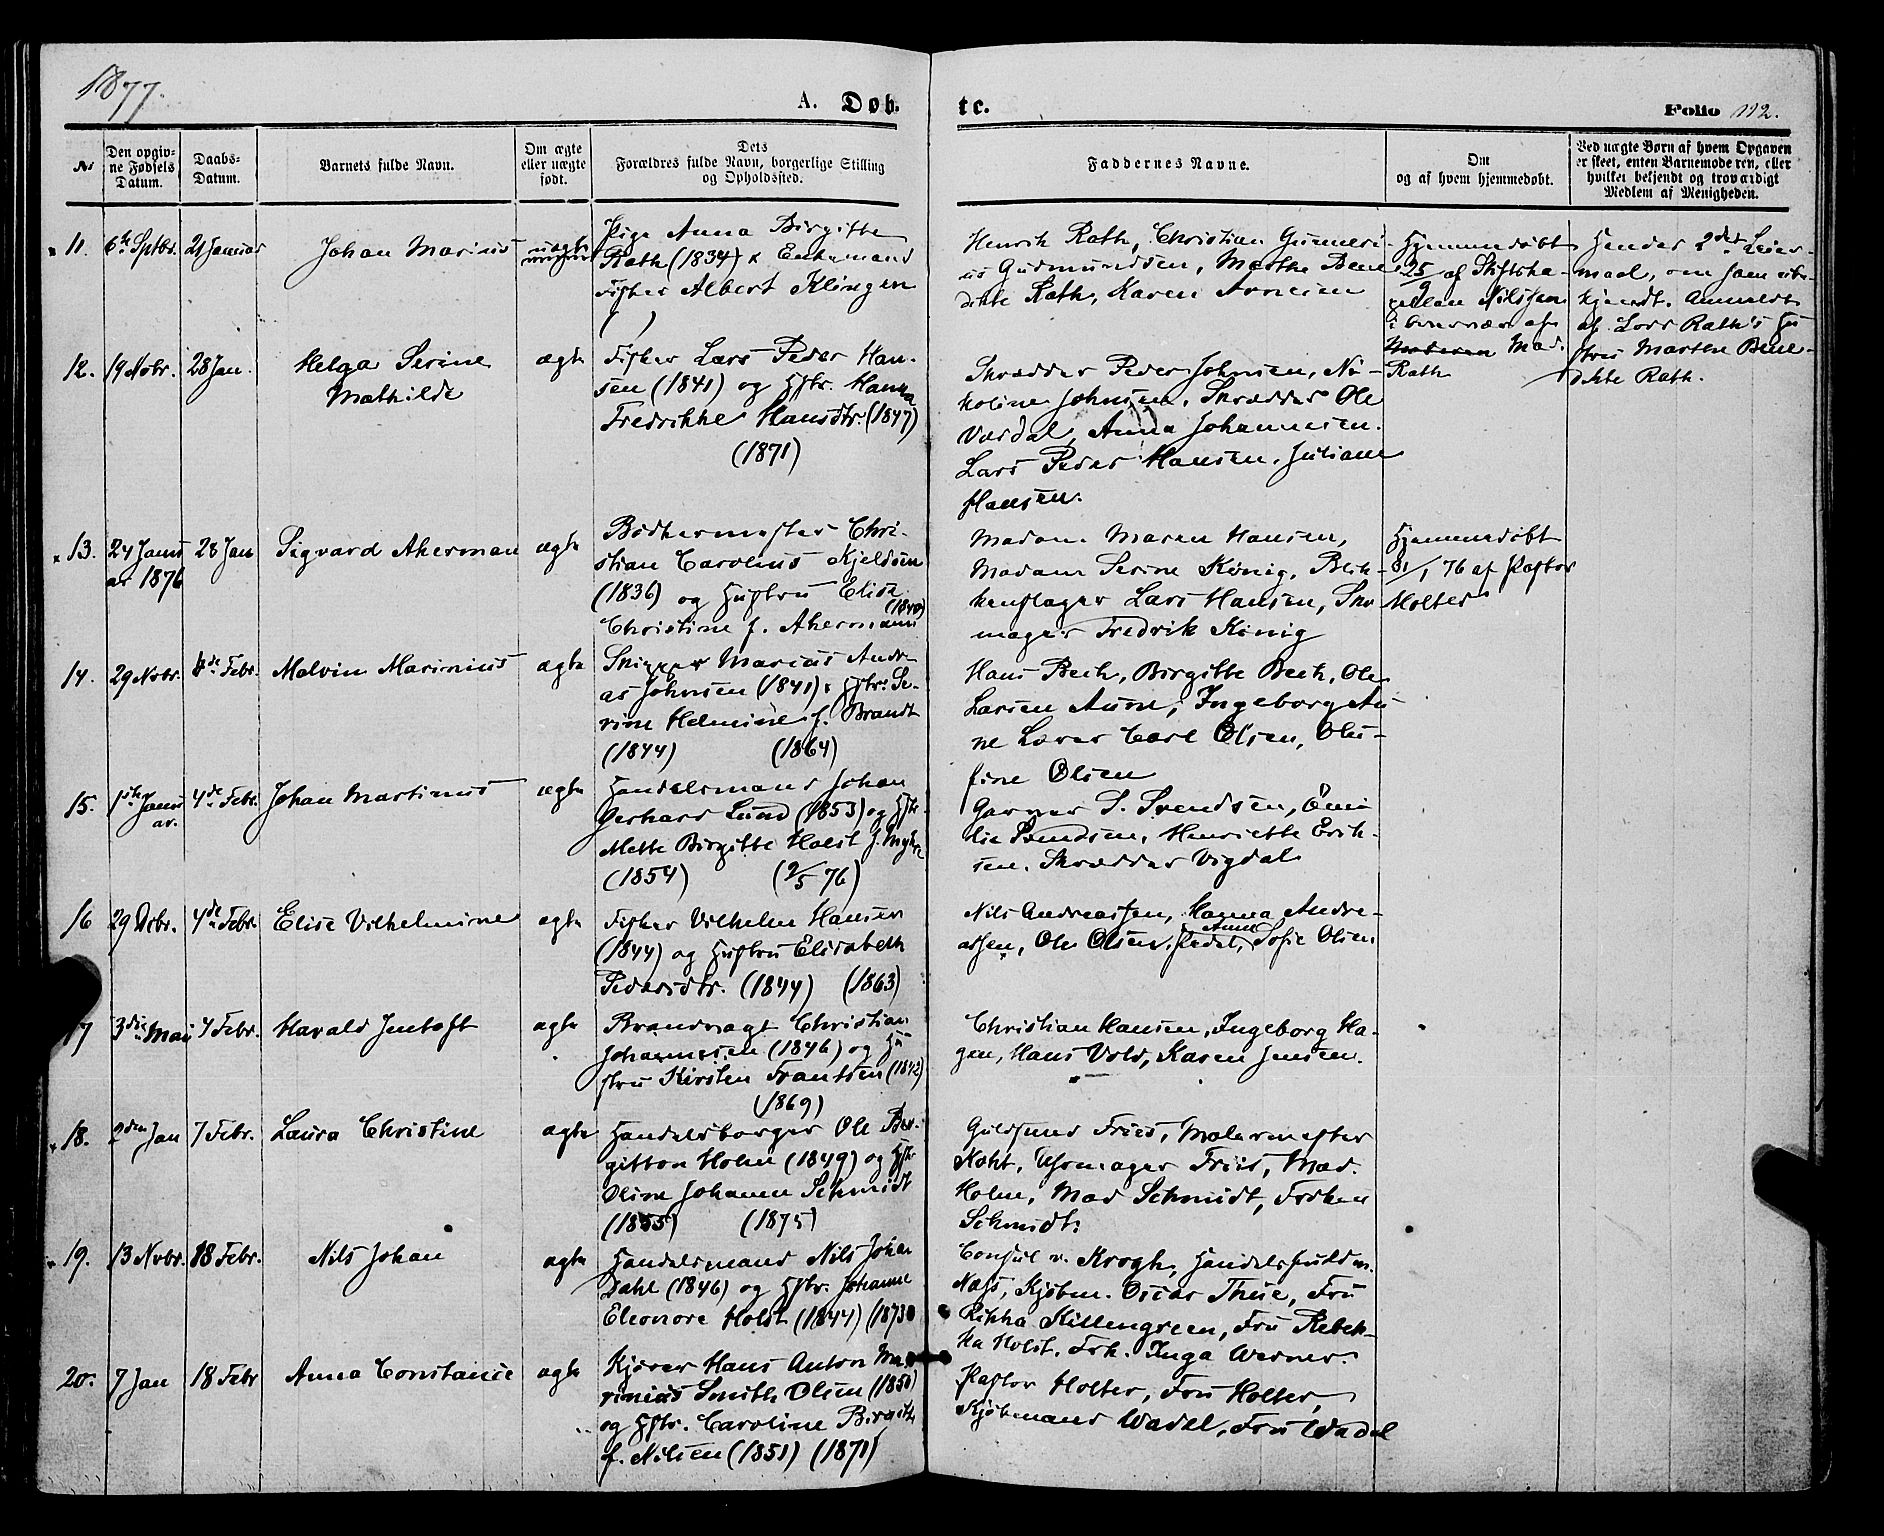 1877.
A. Døb.
te.
Folio 112.
No
Den opgiv-
ne Fødsels
Datum.
Daabs-
Datum.
Barnets fulde Navn.
Om ægte
eller uægte
født.
Dets
Forældres fulde Navn, borgerlige Stilling
og Opholdssted.
Faddernes Navne.
Om
og af hvem hjemmedøbt.
Ved uægte Børn af hvem Opgaven
er skeet, enten Barnemoderen, eller
hvilket bekjendt og troværdigt
Medlem af Menigheden.
11. 6te Sptbr. 21 Januar Johan Marius uægte
Pige Anna Birgitte
Rath (1834) & Enkemand
Fisker Albert Klingen
( )
Henrik Rath, Christian Gunneri-
us Gudmundsen, Marthe Bene
dikte Rath, Karen Arnesen
Hjemmedøbt
25/9 af Stiftska-
pellan Nilssen
i overvær af
Moderen Mad.
Rath
Hendes 2det Leier-
maal, om ham ube-
kjendt. Anmeldt
af Lars Rath's Hu
stru Marthe Bene-
dikte Rath.
12. 19 Nobr. 28 Jan. Helga Serine
Mathilde
ægte
Fisker Lars Peder Han-
sen (1841) og Hstr. Hanna
Fredrikke Hansdtr. (1847)
(1871)
Skrædder Peder Johnsen, Ni-
koline Johnsen, Skrædder Ole
Værdal, Anna Johannesen.
Lars Peder Hansen, Juliane
Hansen.
13. 24 Janu
ar 1876 28 Jan Sigvard Akerman ægte
Bødkermester Chri-
stian Carolius Kjeldsen
(1836) og Hustru Elise
Christine f. Akermann (1840)
Madam Maren Hansen,
Madam Serine König, Blik-
kenslager Lars Hansen, Sko
mager Fredrik König
Hjemmedøbt
31/1 76 af Pastor
Holter
14. 29 Novbr. 4de Febr. Malvin Marinius ægte
Skipper Marius Andre-
as Johnsen (1841) & Hstr. Se-
rine Helmine f. Brandt
(1844) (1864)
Hans Beck, Birgitte Beck, Ole
Larsen Aune, Ingeborg Au-
ne Lærer Carl Olsen, Olu-
fine Olsen
15. 1ste Janu
ar. 4de Febr. Johan Martinus ægte
Handelsmand Johan
Gerhard Lund (1853) og Hstr.
Mette Birgitte Holst f. Myhre
(1854) (9/5 76)
Garver S. Svendsen, Emi
lie Svendsen, Henriette Erik-
sen. Skrædder Vigdal
16 29 Dcbr. 4de Febr. Elise Vilhelmine ægte
Fisker Vilhelm Hansen
(1844) og Hustru Elisabeth
Pedersdtr. (1844) (1863)
Nils Andreassen, Hanna Andre-
assen, Ole Olsen. Sofie Olsen
17 3die Mai 4 Febr. Harald Jentoft ægte
Brandvagt Christian
Johannesen (1846) og Hu-
stru Kirsten Frantsen (1842)
(1869)
Christian Hansen, Ingeborg Ha-
gen, Hans Vold, Karen Jensen.
18. 2den Jan 7 Febr. Laura Christine ægte
Handelsborger Ole Bir-
gitton Holm (1849) og Hstr
Oline Johanne Schmidt
(1855) (1875)
Guldsmed Friis, Malermester
Koht, Uhrmager Friis, Mad.
Holm, Mad Schmidt, Frøken
Schmidt.
19. 13 Novbr. 18 Febr. Nils Johan ægte
Handelsmand Nils Johan
Dahl (1846) og Hstr. Johanne
Eleonore Holst (1844) (1873)
Consul v. Krogh, Handelsfuldm.
Næss, Kjøbm. Oscar Thue, Fru
Rikka Killengreen, Fru Rebek-
ka Holst. Frk. Inga Werner.
20. 7 Jan 18 Febr Anna Constance ægte
Kjører Hans Anton Ma-
rinius Smith Olsen (1850)
og Hstr. Caroline Birgitte
f. Nilsen (1851) (1871)
Pastor Holter, Fru Holter,
Kjøbmand Wadel, Fru Wadel